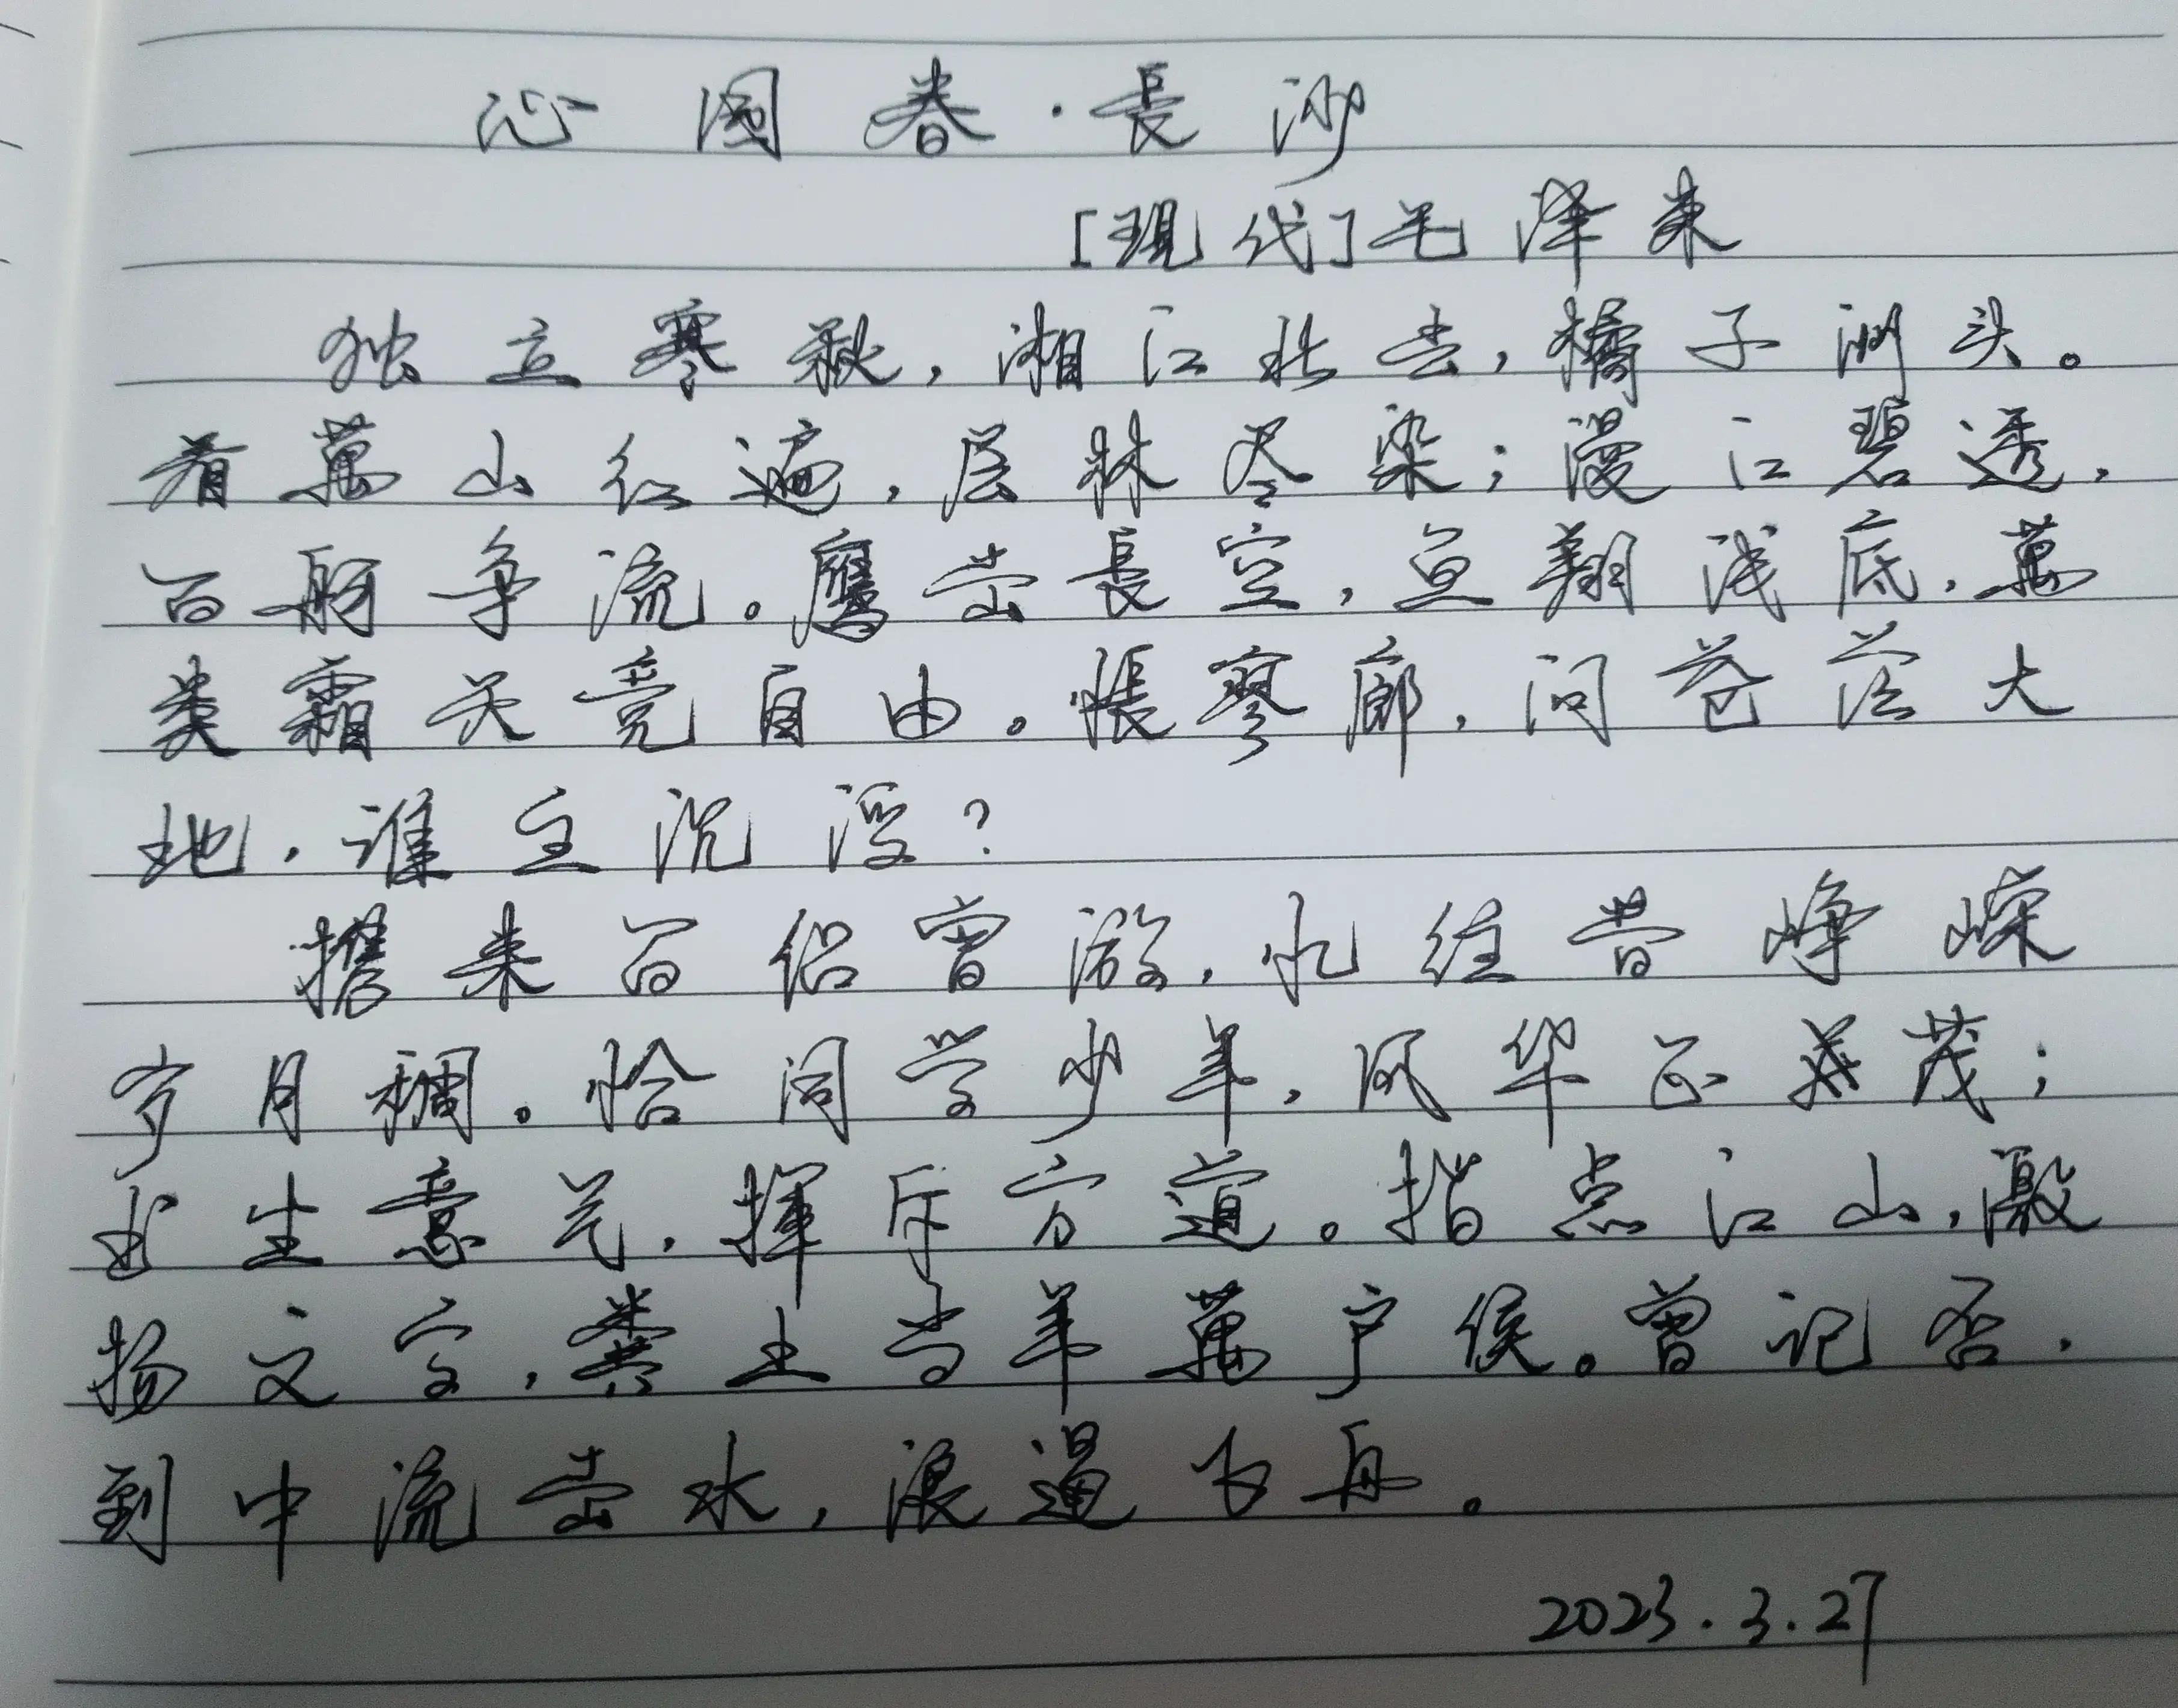 沁园春·長沙
[現代]毛泽东
独立寒秋，湘江北去，橘子洲头。
看萬山红遍，层林尽染；漫江碧透，
百舸争流。鹰击長空，鱼翔浅底，萬
类霜天竞自由。怅寥廓，问苍茫大
地，谁主沉浮？
携来百侣曾游，忆往昔峥嵘
岁月稠。恰同学少年，风华正茂；
书生意气，挥斥方遒。指点江山，激
扬文字，粪土当年萬户侯。曾记否，
到中流击水，浪遏飞舟。
2023.3.27